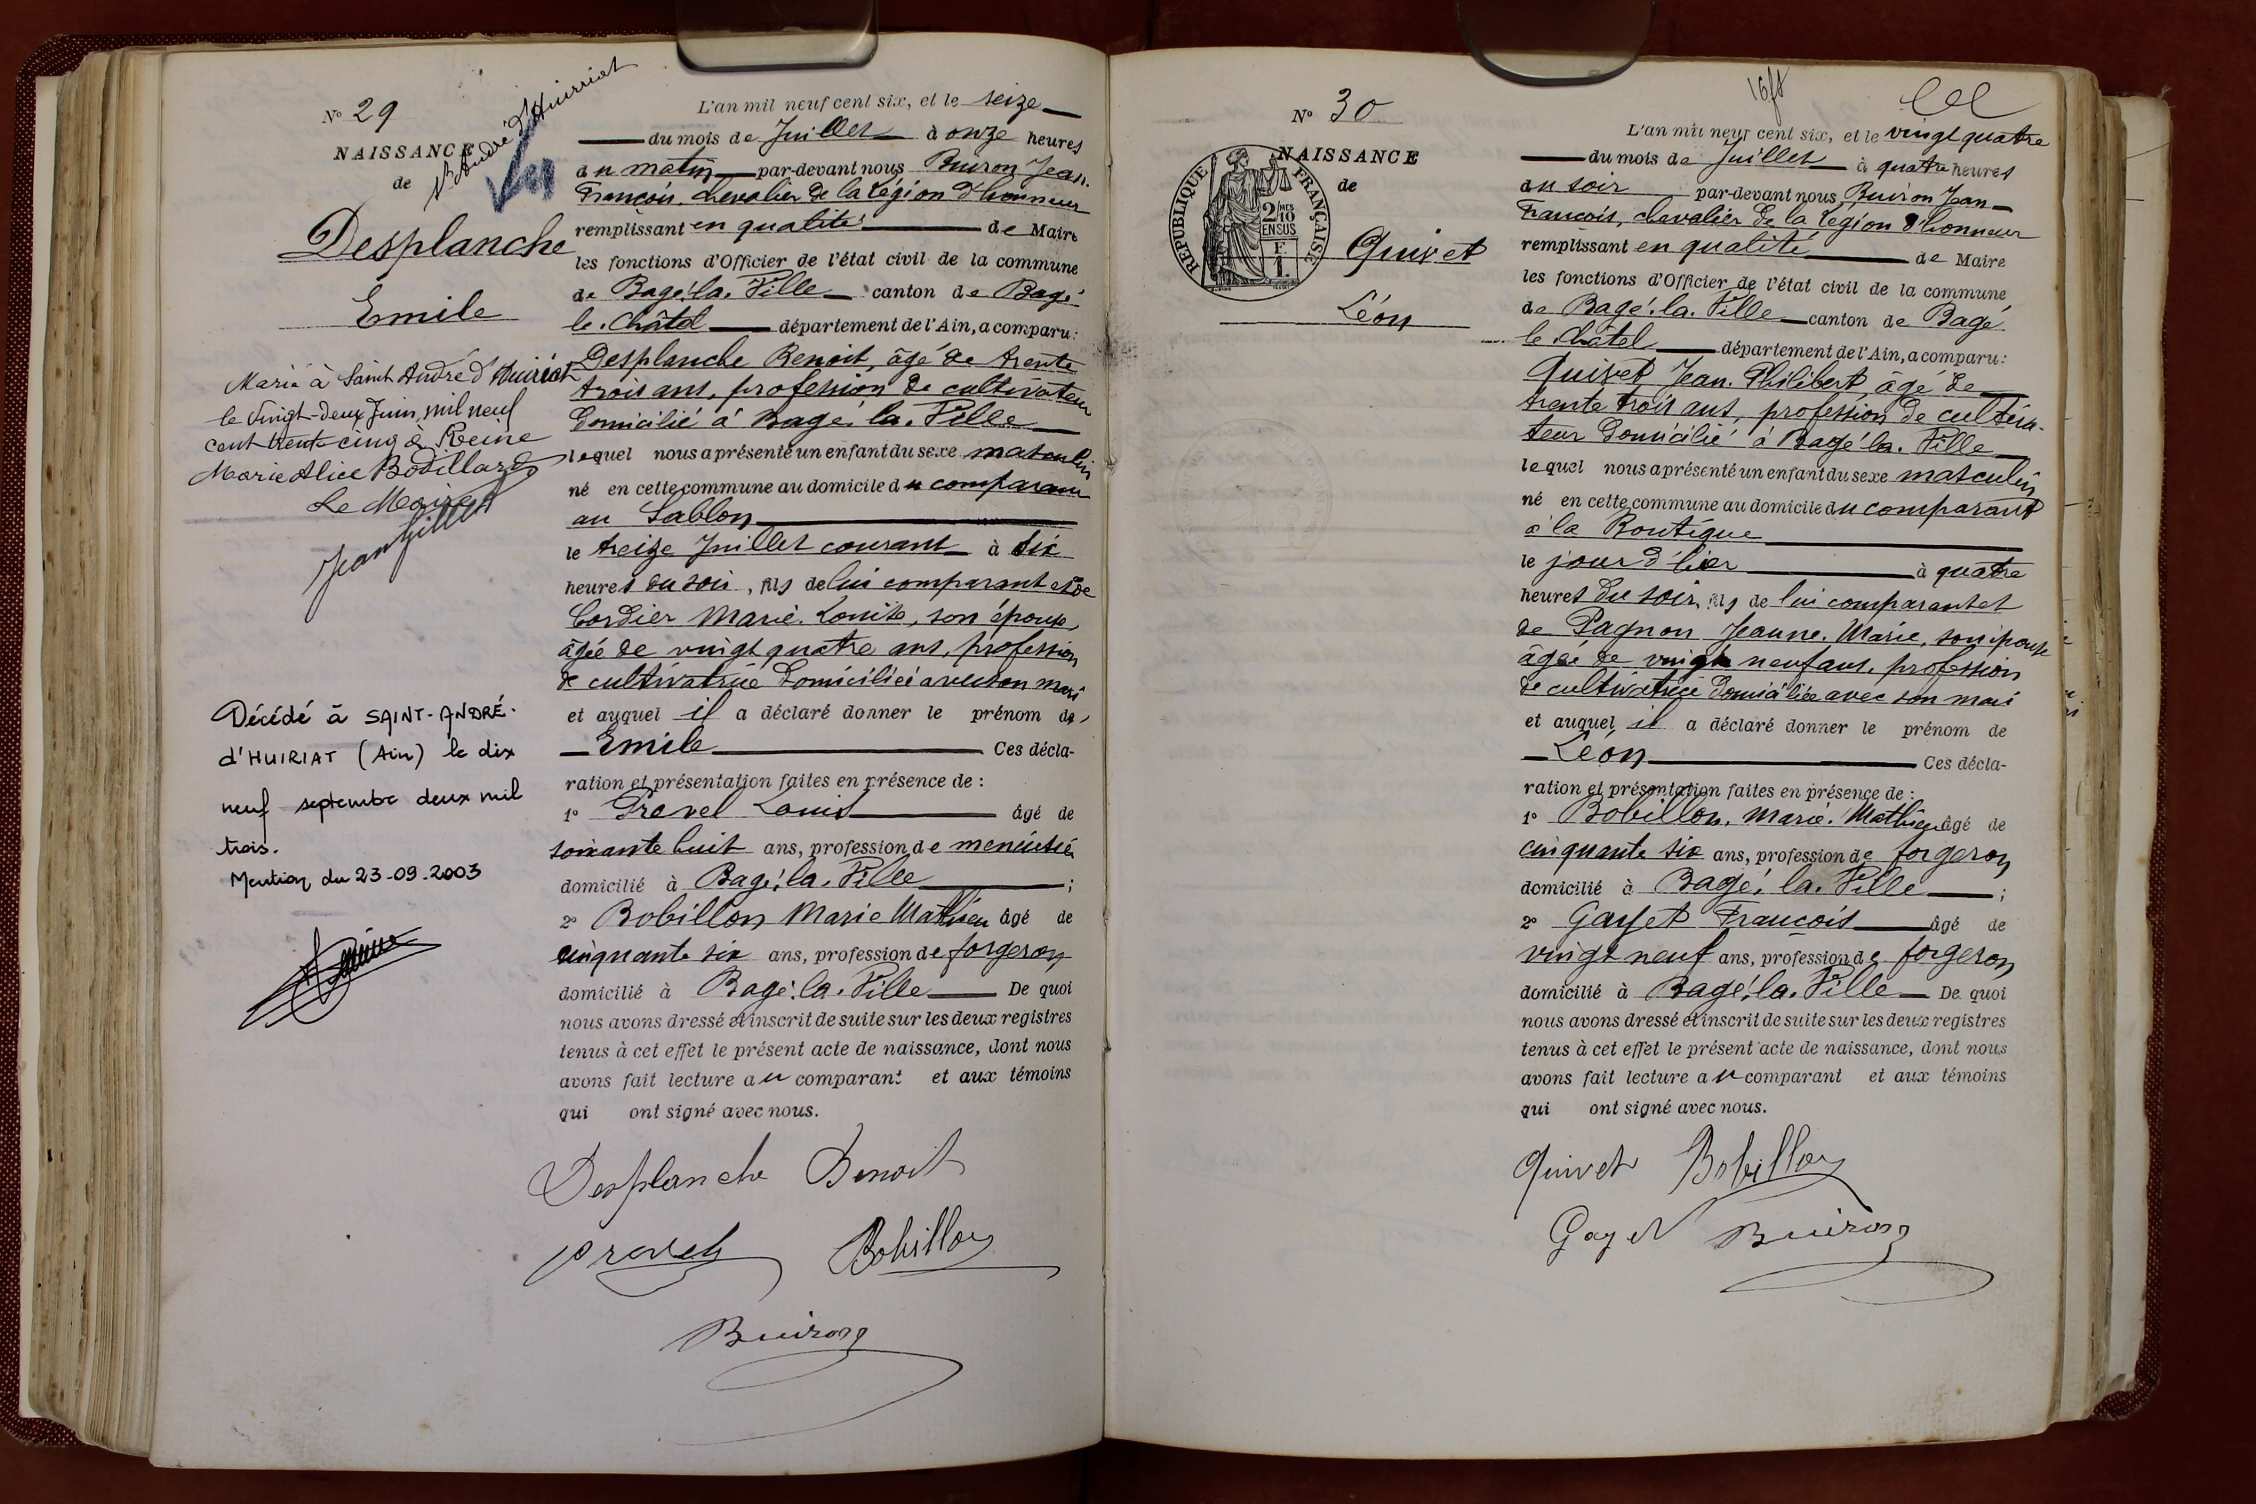 N° 29
St André d'Huiriat
NAISSANCE
de
Desplanche
Emile
Marié à Saint André d'Huiriat
le Vingt-deux Juin mil neuf
cent trente cinq à Reine
Marie Alice Bodillard
Le Maire
Jean
Décédé à SAINT-ANDRÉ-
d'HUIRIAT (Ain) le dix
neuf septembre deux mil
trois.
Mention du 23-09-2003
L'an mil neuf cent six, et le seize
du mois de Juillet à onze heures
du matin par-devant nous Buiron Jean.
François, chevalier de la Légion d'honneur
remplissant en qualité de Maire
les fonctions d'Officier de l'état civil de la commune
de Bagé-la-Ville canton de Bagé
le-Châtel département de l'Ain, a comparu:
Desplanche Benoit, âgé de trente
trois ans, profession de cultivateur
domicilié à Bagé-la-Ville
lequel nous a présenté un enfant du sexe masculin
né en cette commune au domicile du comparant
au Sablon
le treize Juillet courant à six
heures du soir, fils de lui comparant et de
Cordier Marie-Louise, son épouse,
âgée de vingt quatre ans, profession
de cultivatrice domiciliée avec son mari
et auquel il a déclaré donner le prénom de
Emile Ces décla-
ration et présentation faites en présence de :
1° Prevel Louis âgé de
soixante huit ans, profession de menuisier
domicilié à Bagé-la-Ville ;
2° Bobillon Marie Mathieu âgé de
cinquante six ans, profession de forgeron
domicilié à Bagé-la-Ville De quoi
nous avons dressé et inscrit de suite sur les deux registres
tenus à cet effet le présent acte de naissance, dont nous
avons fait lecture au comparant et aux témoins
qui ont signé avec nous.
Desplanche Benoit
Prevel Bobillon
Buiron
N° 30
NAISSANCE
de
RÉPUBLIQUE FRANÇAISE
2/10MES
EN SUS
F
1
Quivet
Léon
L'an mil neuf cent six, et le vingt quatre
du mois de Juillet à quatre heures
du soir par-devant nous Buiron Jean
François, chevalier de la Légion d'honneur
remplissant en qualité de Maire
les fonctions d'Officier de l'état civil de la commune
de Bagé-la-Ville canton de Bagé
le Châtel département de l'Ain, a comparu:
Quivet Jean-Philibert âgé de
trente trois ans, profession de cultiva-
teur domicilié à Bagé-la-Ville
lequel nous a présenté un enfant du sexe masculin
né en cette commune au domicile du comparant
à la Boutique
le jour d'hier à quatre
heures du soir, fils de lui comparant et
de Pagnon Jeanne-Marie, son épouse
âgée de vingt neuf ans, profession
de cultivatrice domiciliée avec son mari
et auquel il a déclaré donner le prénom de
Léon Ces décla-
ration et présentation faites en présence de :
1° Bobillon, Marie-Mathieu âgé de
cinquante six ans, profession de forgeron
domicilié à Bagé-la-Ville ;
2° Gayet François âgé de
vingt neuf ans, profession de forgeron
domicilié à Bagé-la-Ville De quoi
nous avons dressé et inscrit de suite sur les deux registres
tenus à cet effet le présent acte de naissance, dont nous
avons fait lecture au comparant et aux témoins
qui ont signé avec nous.
Quivet Bobillon
Gayet Buiron